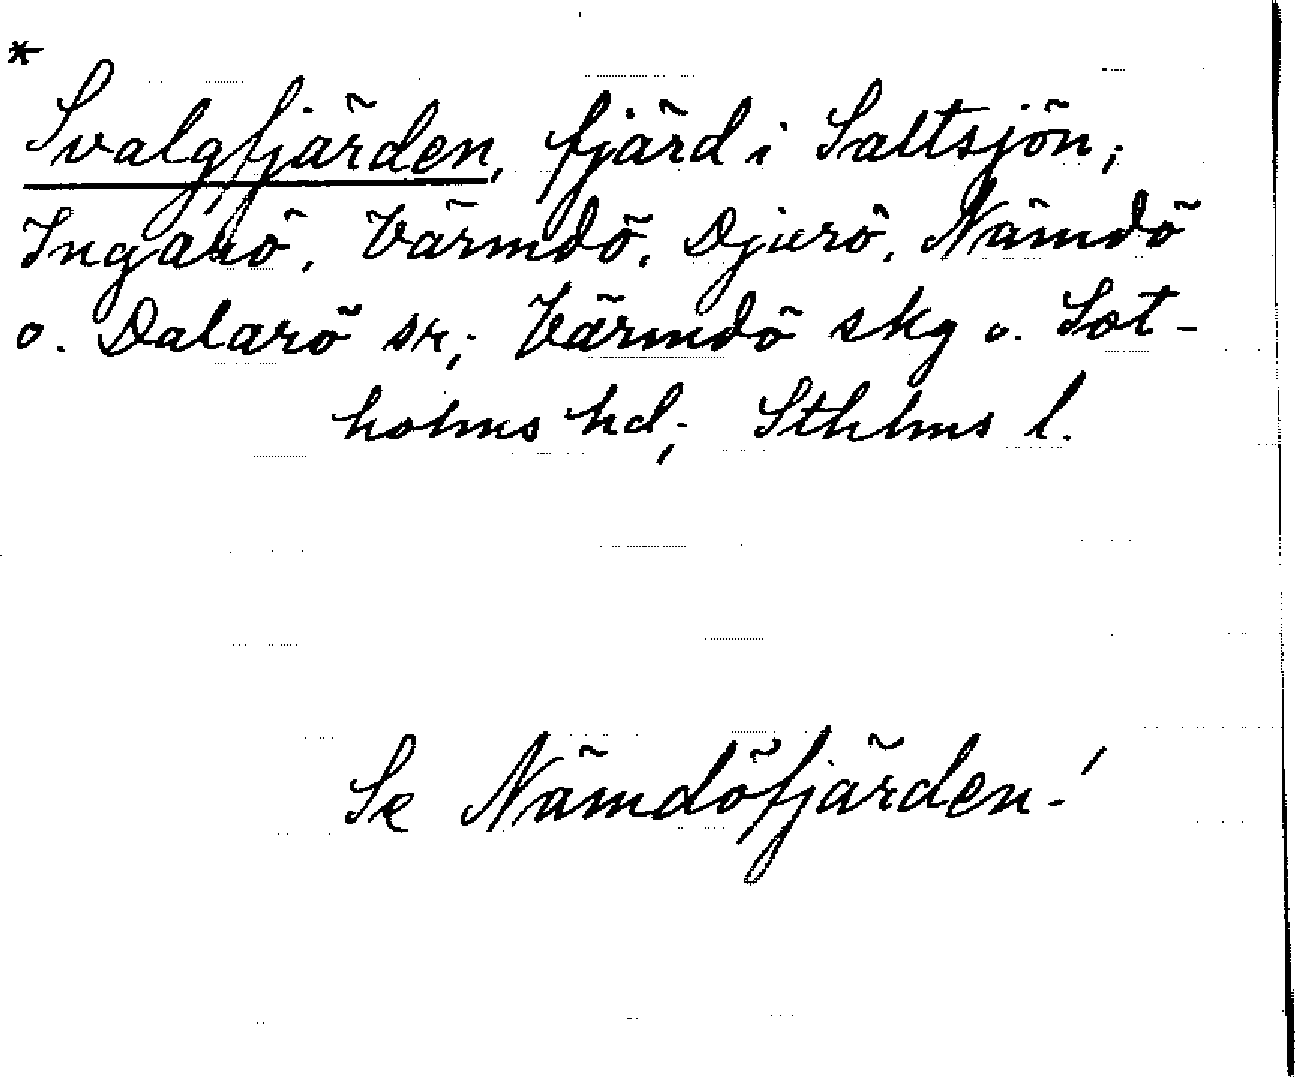 *
Svalgfjärden, fjärd i Saltsjön;
Ingarö, Värmdö, Djurö, Nämdö
o. Dalarö sr; Värmdö skg o. Sot-
holms hd; Sthlms l.
Se Nämdöfjärden!